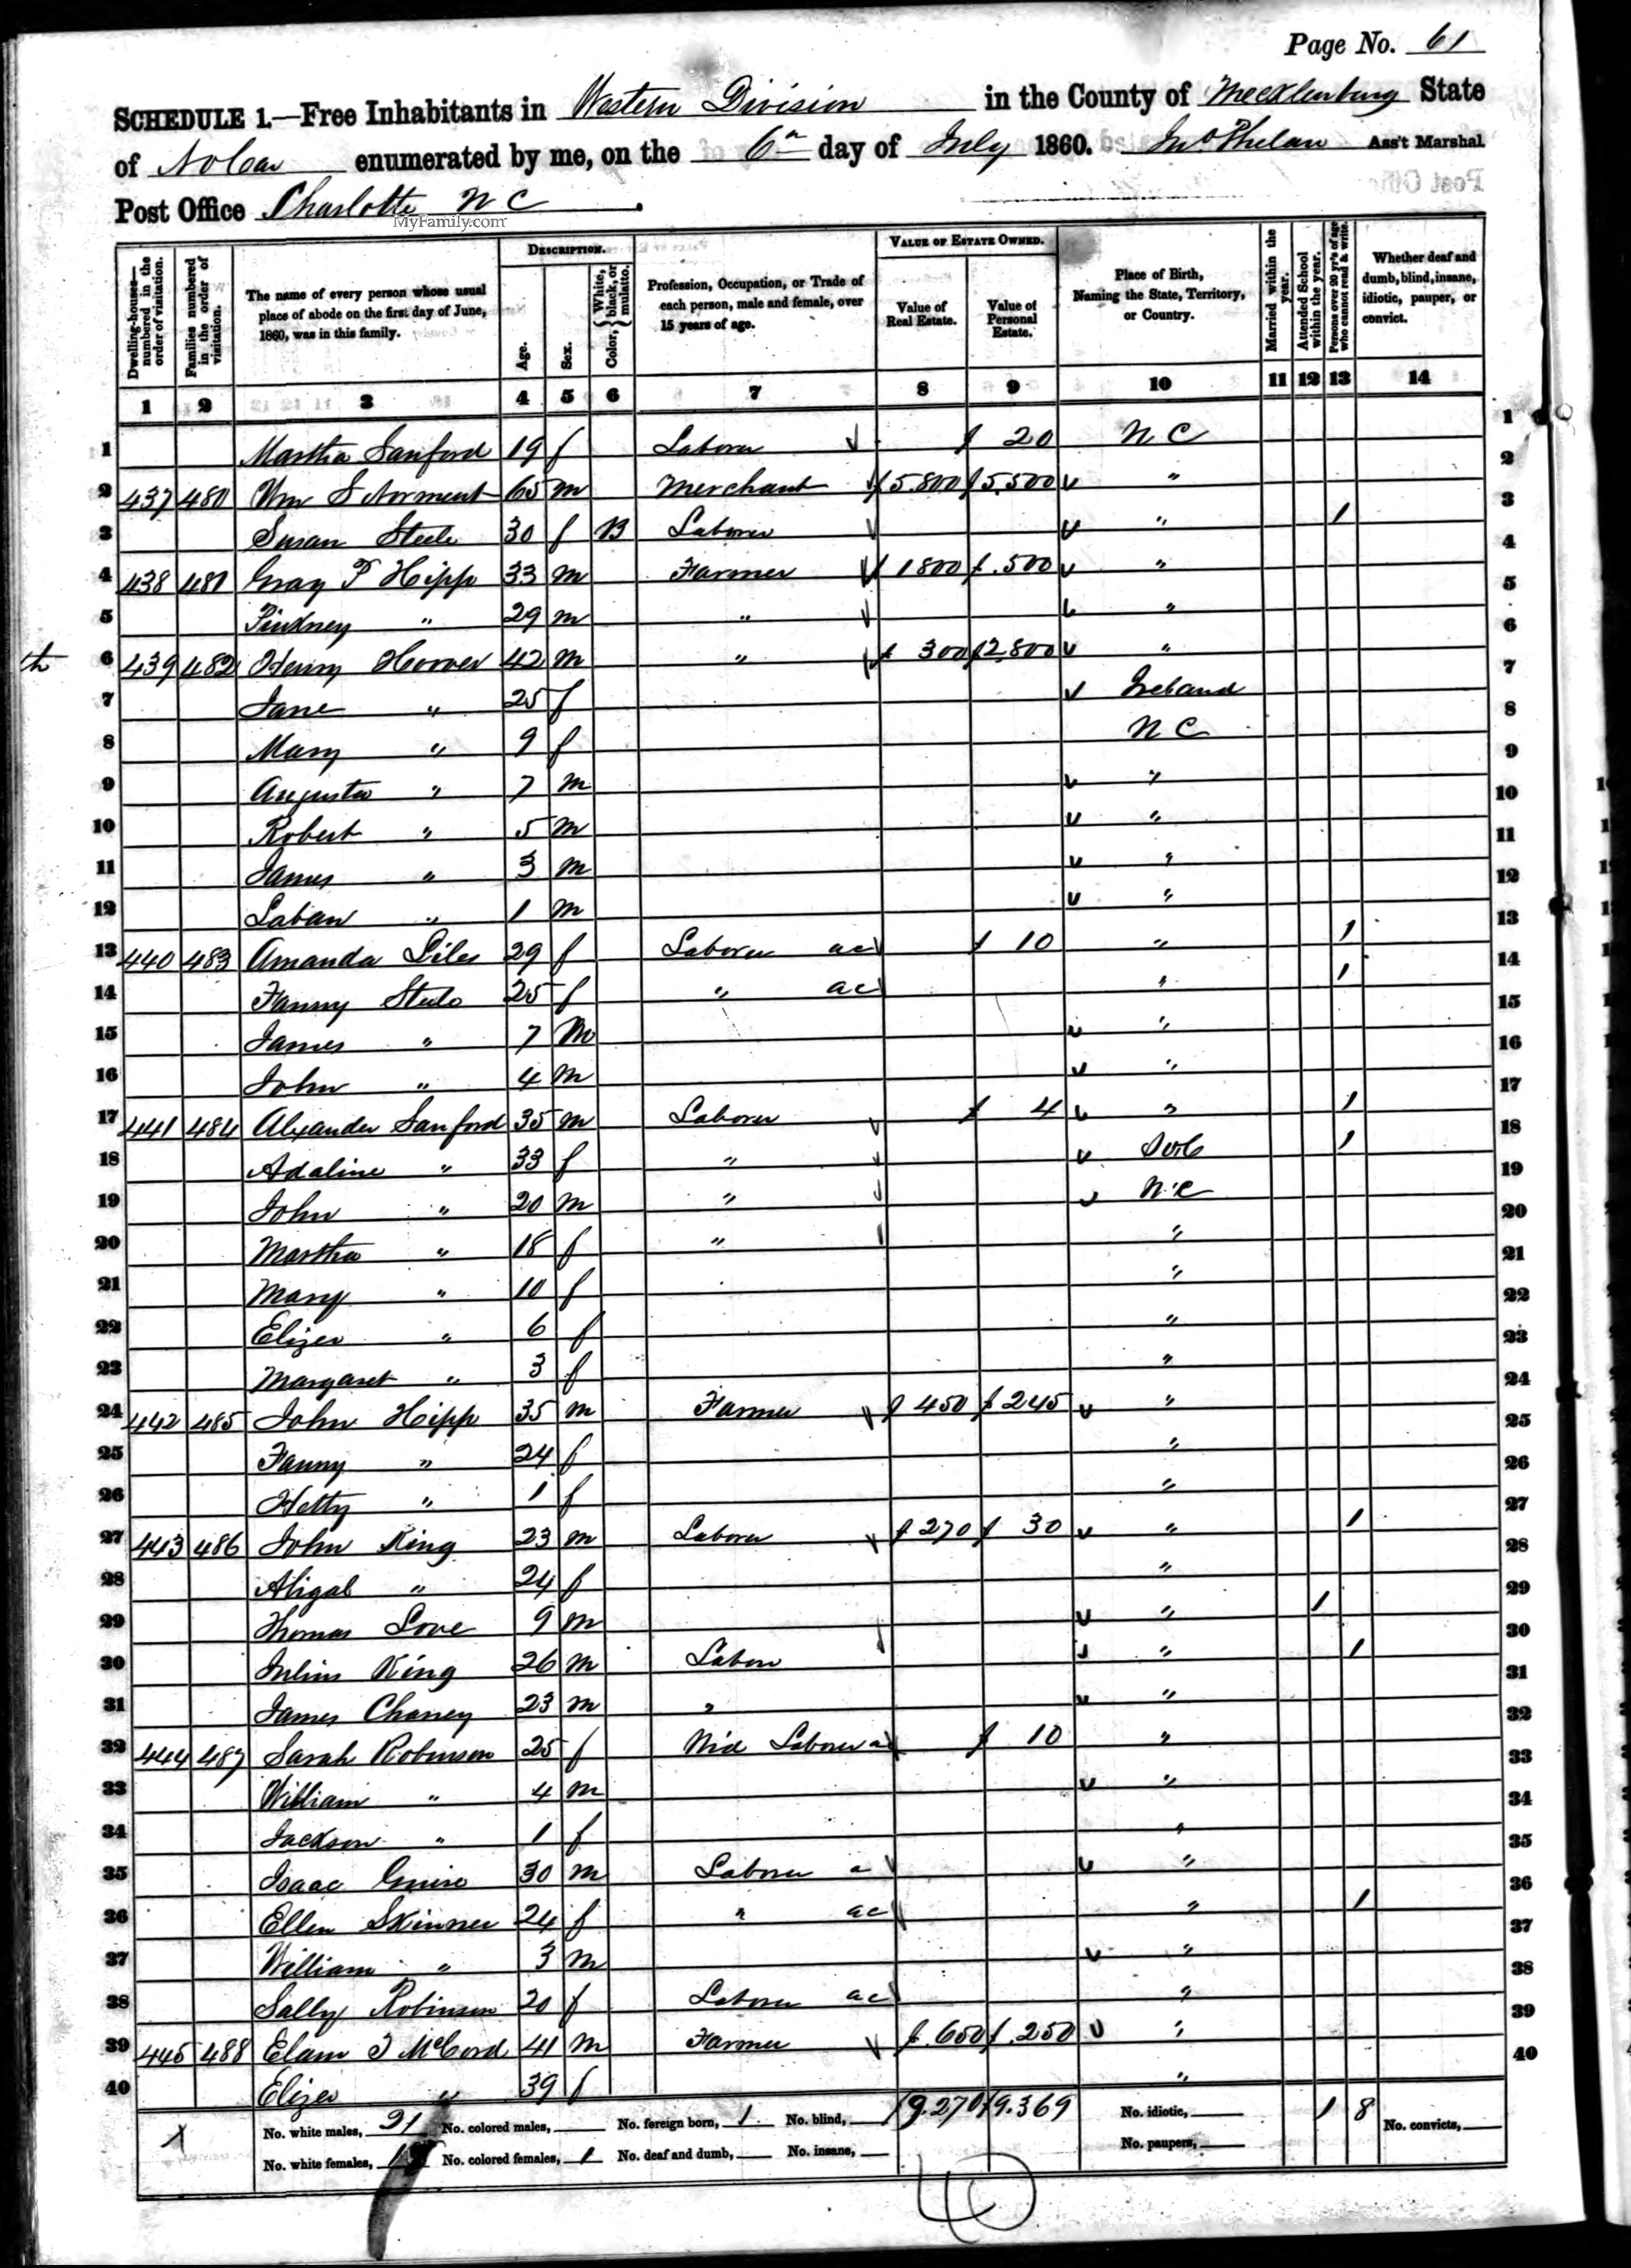 Page No. 61
SCHEDULE 1.—Free Inhabitants in Western Division in the County of Mecklenburg State
of No Car enumerated by me, on the 6th day of July 1860. Jno Phelan Ass't Marshal
Post Office Charlotte N C
MyFamily.com
Dwelling-houses—numbered in the order of visitation. Families numbered in the order of visitation. The name of every person whose usual place of abode on the first day of June, 1860, was in this family. DESCRIPTION. Age. Sex. Color, { White, black, or mulatto. Profession, Occupation, or Trade of each person, male and female, over 15 years of age. VALUE OF ESTATE OWNED. Value of Real Estate. Value of Personal Estate. Place of Birth, Naming the State, Territory, or Country. Married within the year. Attended School within the year. Persons over 20 yr's of age who cannot read & write. Whether deaf and dumb, blind, insane, idiotic, pauper, or convict.
1 2 3 4 5 6 7 8 9 10 11 12 13 14
1 Martha Sanford 19 f Laborer $ 20 N C 1
2 437 480 Wm S Norment 65 m Merchant $5.800 $5.500 " 2
3 Susan Steele 30 f B Laborer " 1 3
4 438 481 Gray P Hipp 33 m Farmer $1800 $.500 " 4
5 Pinkney " 29 m " " 5
6 439 482 Henry Hoover 42 m " $ 300 $2,800 " 6
7 Jane " 25 f Ireland 7
8 Mary " 9 f N C 8
9 Augustus " 7 m " 9
10 Robert " 5 m " 10
11 James " 3 m " 11
12 Laban " 1 m " 12
13 440 483 Amanda Liles 29 f Laborer ac $ 10 " 1 13
14 Fanny Steele 25 f " ac " 1 14
15 James " 7 m " 15
16 John " 4 m " 16
17 441 484 Alexander Sanford 35 m Laborer $ 4 " 1 17
18 Adaline " 33 f " 1 18
19 John " 20 m " N.C 19
20 Martha " 18 f " " 20
21 Mary " 10 f " 21
22 Elizer " 6 f " 22
23 Margaret " 3 f " 23
24 442 485 John Hipp 35 m Farmer $ 450 $ 245 " 24
25 Fanny " 24 f " 25
26 Hetty " 1 f " 26
27 443 486 John King 23 m Laborer $ 270 $ 30 " 1 27
28 Abigal " 24 f " 28
29 Thomas Love 9 m " 1 29
30 Julius King 26 m Labor " 1 30
31 James Chaney 23 m " " 31
32 444 487 Sarah Robinson 25 f Wid Laborer $ 10 " 32
33 William " 4 m " 33
34 Jackson " 1 f " 34
35 Isaac 30 m Laborer a " 35
36 Ellen Skinner 24 f " ac " 1 36
37 William " 3 m " 37
38 Sally Robinson 20 f Laborer ac " 38
39 445 488 Elam J McCord 41 m Farmer $.650 $.250 " 39
40 Elizer " 39 f " 40
No. white males, 21 No. colored males, No. foreign born, 1 No. blind, 9.270 9.369 No. idiotic, 1 8 No. convicts,
No. white females, No. colored females, 1 No. deaf and dumb, No. insane, No. paupers,
40